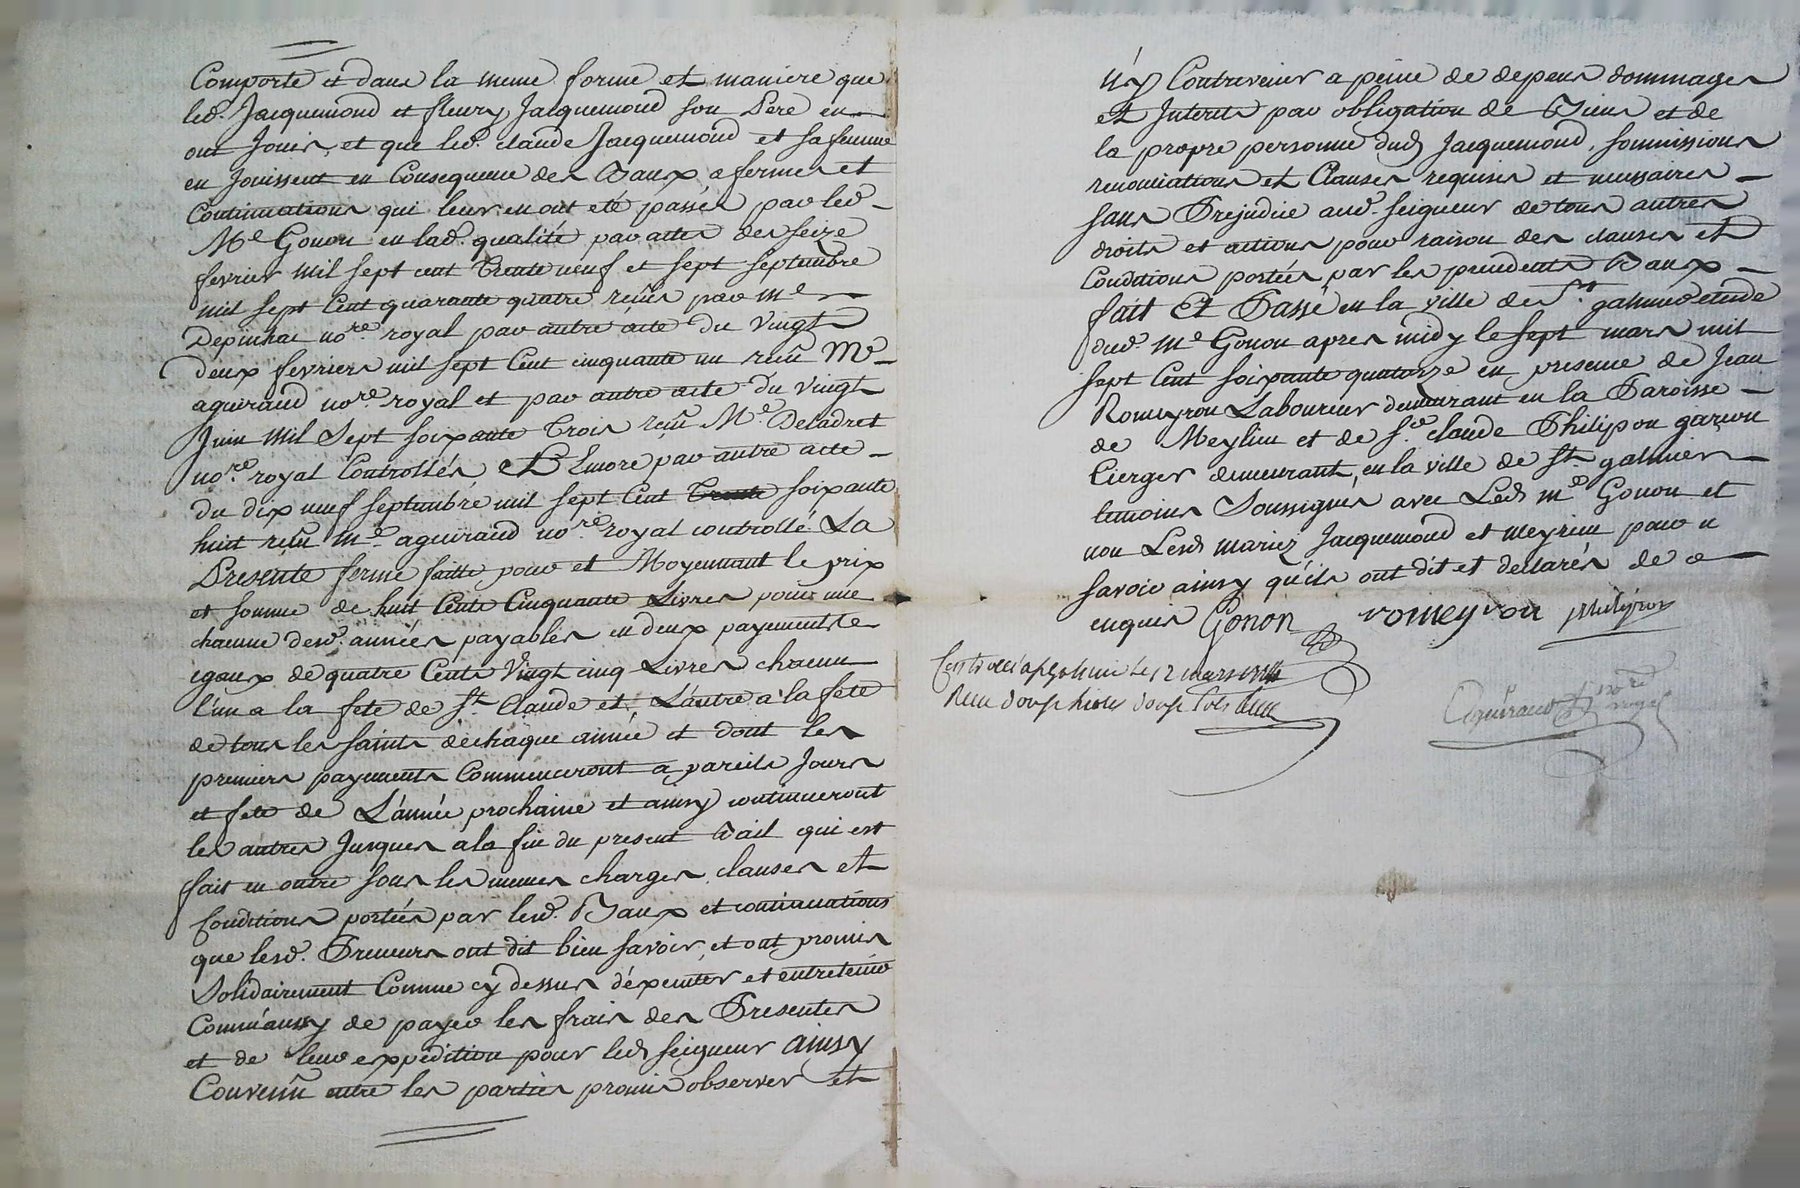 Comporte et dans la meme forme et maniere que
led. Jacquemond et fleury Jacquemond son Pere en
ont Jouis, et que led. claude Jacquemond et sa femme
en Jouissent en Consequence des Baux a fermes et
Continuations qui leur en ont eté passés par led.
Me Gonon en lad. qualité par actes des seize
fevrier mil sept cent trente neuf et sept septembre
mil sept Cent quarante quatre réçus par me
Depinhac nore. royal par autre acte du vingt
deux fevrier mil sept Cent cinquante un reçu Me
aguiraud nore. royal et par autre acte du vingt
Juin mil Sept soixante trois reçu Me Deladret
nore. royal Controllés, Et Encore par autre acte
du dix neuf septembre mil sept Cent trente soixante
huit reçu me aguiraud nore royal controllé La
Presente ferme faitte pour et Moyennant le prix
et somme de huit Cents Cinquante Livres pour une
chacune desd. années payables en deux payements
egaux de quatre Cents Vingt cinq Livres chacun
l'un a la fete de St Claude et L'autre a la fete
de tous les saints de chaque année et dont les
premiers payements Commenceront a pareils Jours
et fete de L'année prochaine et ainsy continueront
les autres Jusques a la fin du present Bail qui est
fait en outre sous les memes charges, clauses et
Conditions portées par lesd. Baux et continuations
que lesd. Preneurs ont dit bien savoir, et ont promis
Solidairement Comme cy dessus d'éxecuter et entretenir
Comm'aussy de payer les frais des Presentes
et de leur expedition pour led seigneur ainsy
Convenu entre les parties promis observer et
n'y Contrevenir a peine de depens dommages
et Interets par obligation de Biens et de
la propre personne dud Jacquemond, soumissions
renonciations et Clauses requises et necessaires
sans Prejudice aud. seigneur de tous autres
droits et actions pour raison des clauses et
Conditions portées par les precedents Baux
fait Et Passé en la ville de St. galmier etude
dud. me Gonon apres midy le sept mars mil
sept Cent soixante quatorze en presence de Jean
Romeyron Laboureur demeurant en la Paroisse
de Meylieu et de sr claude Philipon garçon
Cierger demeurant en la ville de St. galmier
temoins Soussignés avec Led me Gonon et
non Lesd mariez Jacquemond et meyrieu pour n
savoir ainsy qu'ils ont dit et declarés de ce
enquis Gonon romeyron philipon
le 12 mars 1774
Aguiraud nore royal